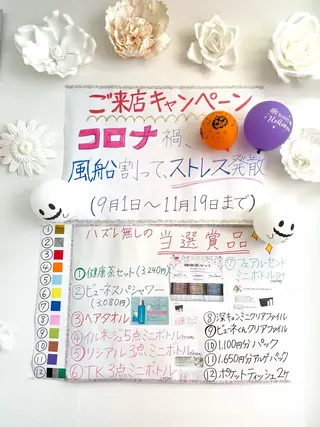 ご来店キャンペーン
コロナ禍、
風船割って、ストレス発散
(9月1日〜11月19日まで)
ハズレ無しの当選賞品
①健康茶セット(3,240円)
②ビューネスパシャワー
(3,080円)
③ヘアタオル
④イルネージュ5点ミニボトル
⑤リシアル3点ミニボトル
⑥TK3点ミニボトル
⑦フェアルセット
ミニボトル2コ
⑧深キュンミニクリアファイル
⑨ビューネくんクリアファイル
⑩1,100円分パック
⑪1,650円分アルゲパック
⑫ポケットティッシュ2ヶ
①
②
③
④
⑤
⑥
⑦
⑧
⑨
⑩
⑪
⑫